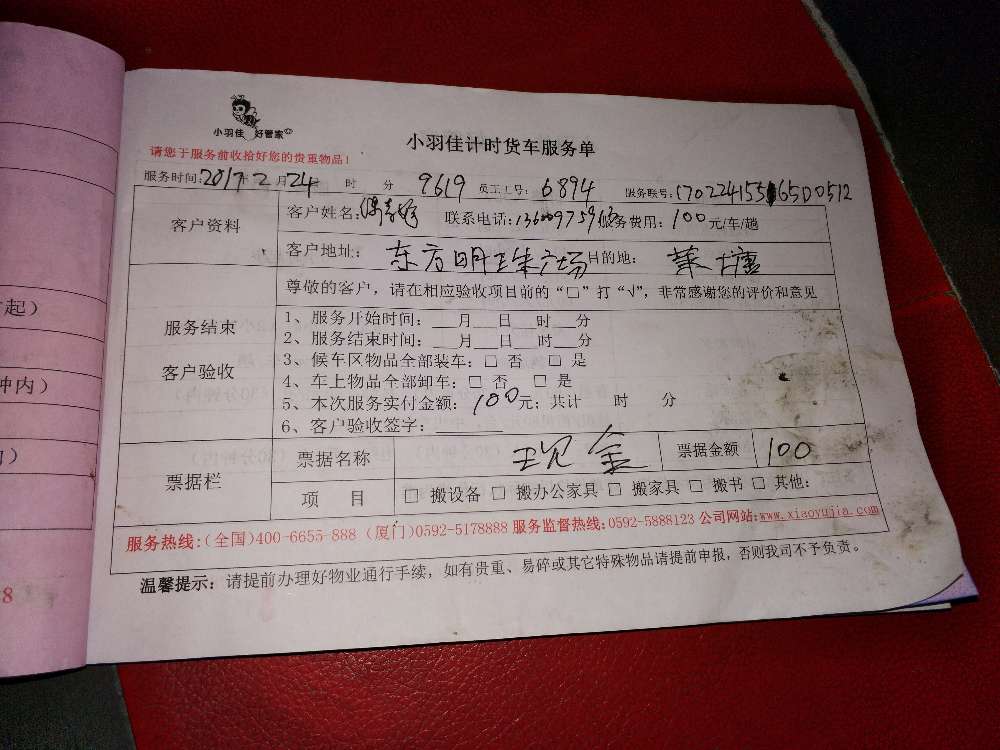 小羽佳 好管家
小羽佳计时货车服务单
请您于服务前收拾好您的贵重物品！
服务时间：2017年2月24日 时 分 9619 员工工号：6894 服务联号：
客户资料 客户姓名： 联系电话： 服务费用：100元/车/趟
客户地址：东方明珠广场 目的地：
尊敬的客户，请在相应验收项目前的“□”打“√”，非常感谢您的评价和意见
服务结束
客户验收
1、服务开始时间：__月__日__时__分
2、服务结束时间：__月__日__时__分
3、候车区物品全部装车：□ 否 □ 是
4、车上物品全部卸车：□ 否 □ 是
5、本次服务实付金额：100元；共计 时 分
6、客户验收签字：
票据栏 票据名称 现金 票据金额 100
项 目 □ 搬设备 □ 搬办公家具 □ 搬家具 □ 搬书 □ 其他：
服务热线：(全国)400-6655-888 (厦门)0592-5178888 服务监督热线：0592-5888123 公司网站：www.xiaoyujia.com
温馨提示：请提前办理好物业通行手续，如有贵重、易碎或其它特殊物品请提前申报，否则我司不予负责。
起）
钟内）
8